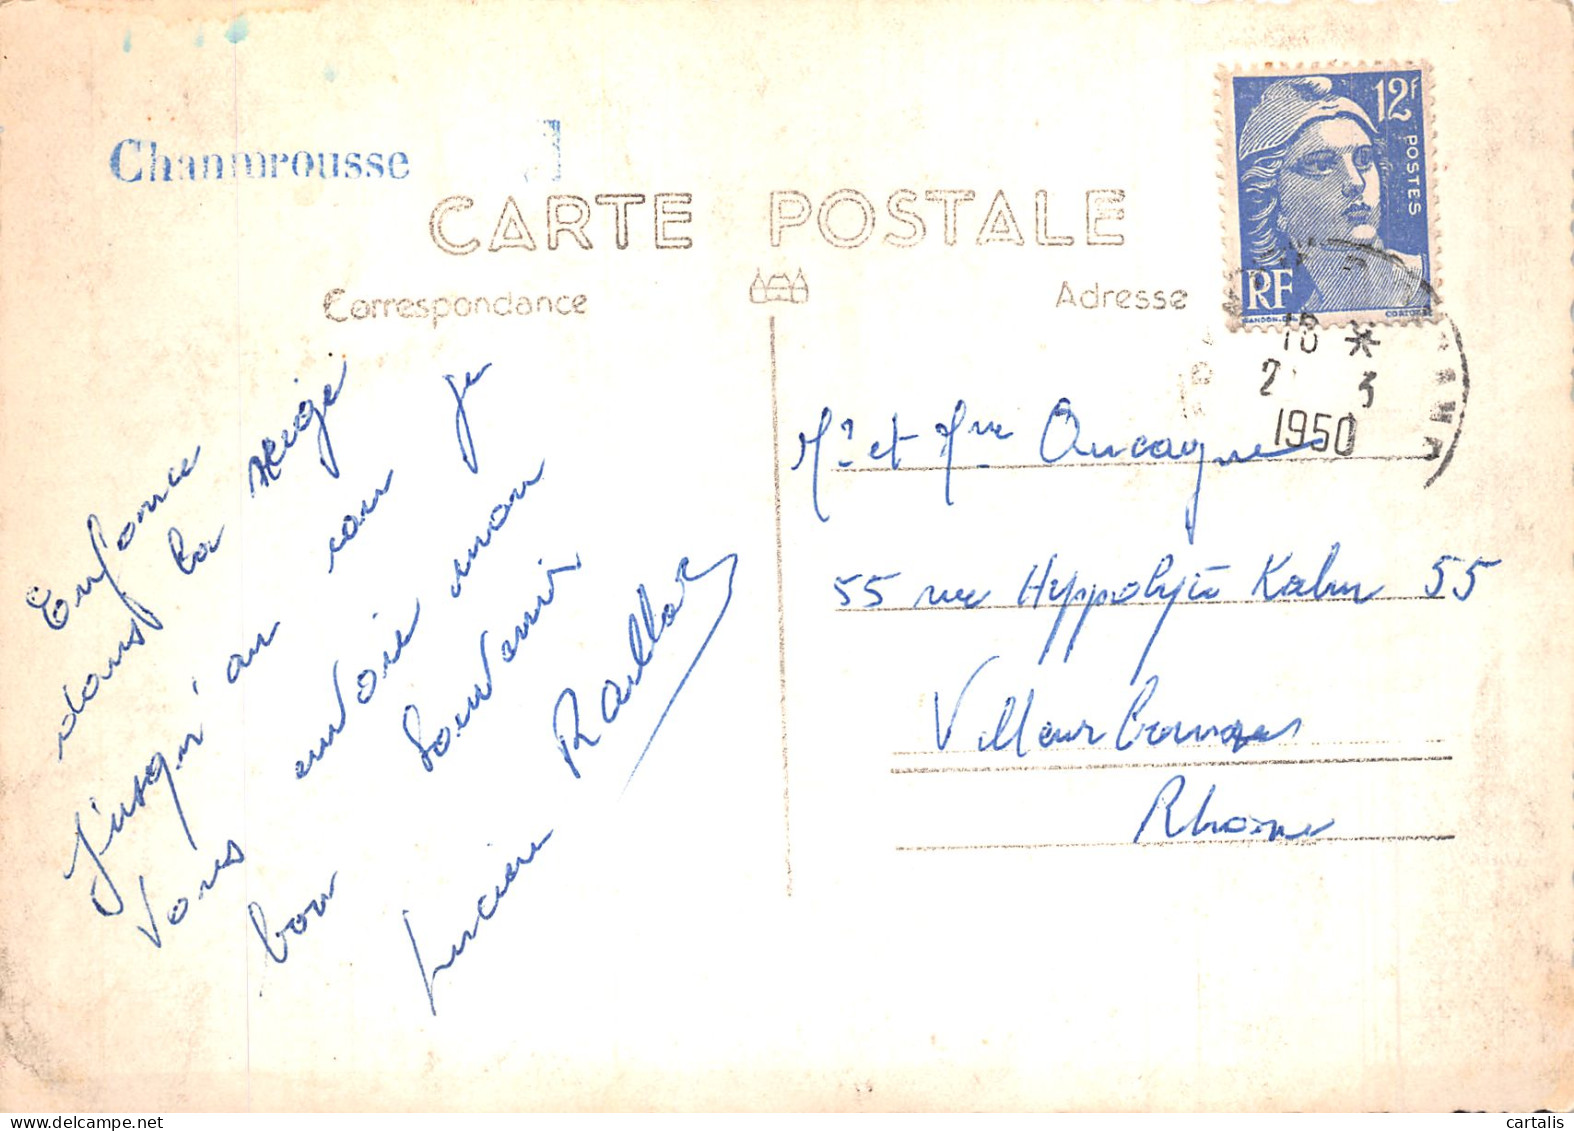 Chamrousse
CARTE POSTALE
Correspondance
Adresse
12f
POSTES
RF
GANDON
16 *
2 3
1950
Enfoncé
dans la neige
jusqu'au cou je
vous envoie mon
bon souvenir
Lucien
Mr et Mme
55 rue Hyppolyte Kahn 55
Villeurbanne
Rhône
cartalis